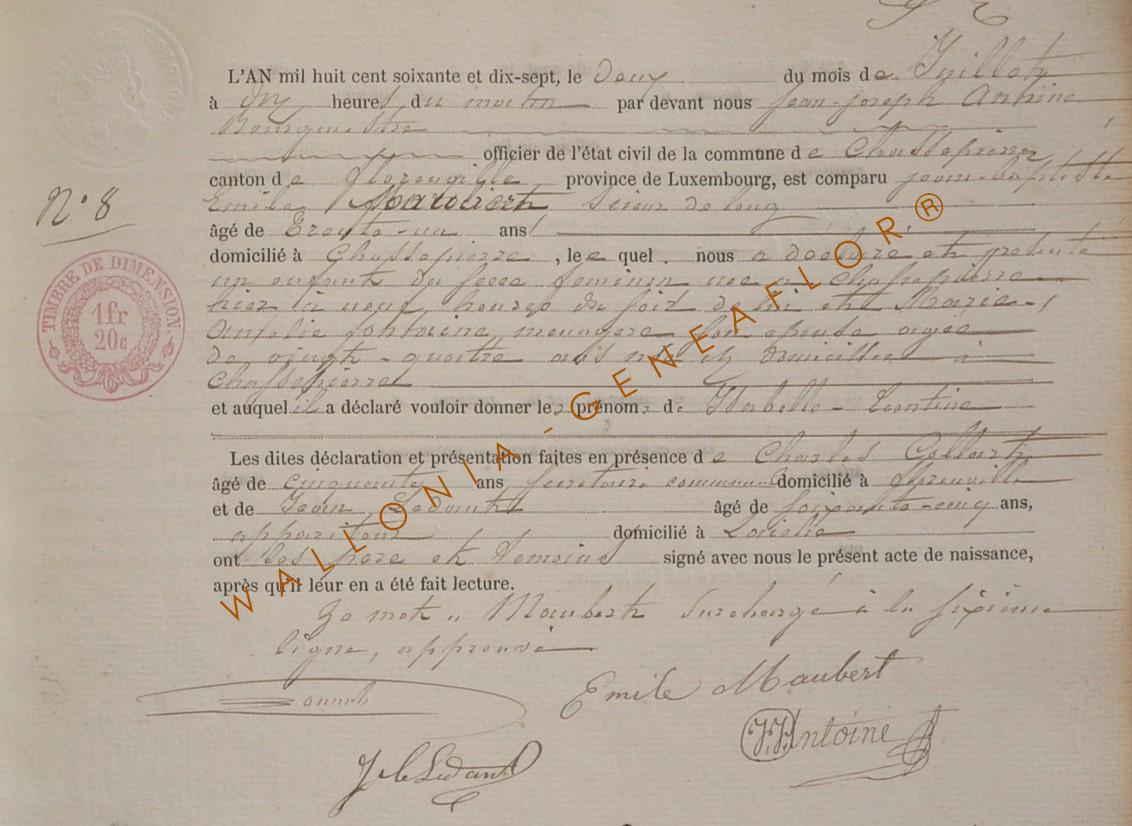 L'AN mil huit cent soixante et dix-sept, le deux du mois de Juillet
à dix heures du matin par devant nous Jean-Joseph Antoine
Bourgmestre
officier de l'état civil de la commune de Chassepierre
canton de Florenville province de Luxembourg, est comparu Jean-Baptiste
N° 8
Emile Maubert scieur de long
âgé de Trente-un ans
domicilié à Chassepierre, lequel nous a déclaré et présenté
un enfant du sexe féminin née à Chassepierre
hier à neuf heures du soir de lui et Marie-
Amélie Fontaine, ménagère son épouse agée
de vingt-quatre ans née et domiciliée à
Chassepierre
TIMBRE DE DIMENSION
1fr
20c
et auquel il a déclaré vouloir donner les prénoms de Isabelle-Léontine
Les dites déclaration et présentation faites en présence de Charles Collart
âgé de cinquante ans, secrétaire communal domicilié à Florenville
et de Ledant âgé de soixante-cinq ans,
appariteur domicilié à
ont les père et témoins signé avec nous le présent acte de naissance,
après qu'il leur en a été fait lecture.
Le mot " Maubert surchargé à la sixième
ligne, approuvé
Emile Maubert
J.J. Antoine
Ledant
WALLONIA-GENEAFLOR®